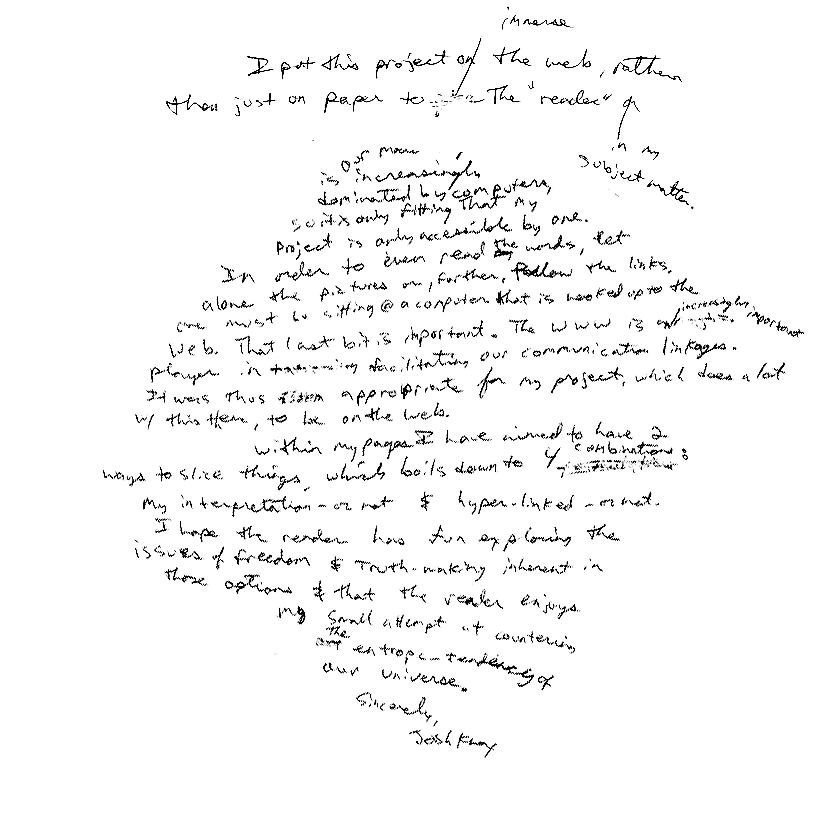 immerse
I put this project on the web, rather
than just on paper to The "reader"
in my
subject matter.
Our
is increasingly
dominated by computers,
so it is only fitting That my
project is only accessible by one.
In order to even read the words, let
alone the pictures or, further, follow the links,
one must be sitting @ a computer that is hooked up to the
increasingly important
Web. That last bit is important. The WWW is an
player in facilitating our communication linkages.
It was thus appropriate for my project, which does a lot
w/ this theme, to be on the web.
within my pages I have aimed to have 2
combinations:
ways to slice things, which boils down to 4
my interpretation - or not & hyper-linked - or not.
I hope the reader has fun exploring the
issues of freedom & Truth-making inherent in
those options & that the reader enjoys
my small attempt at countering
the
entropic tendency of
our universe.
Sincerely,
Josh